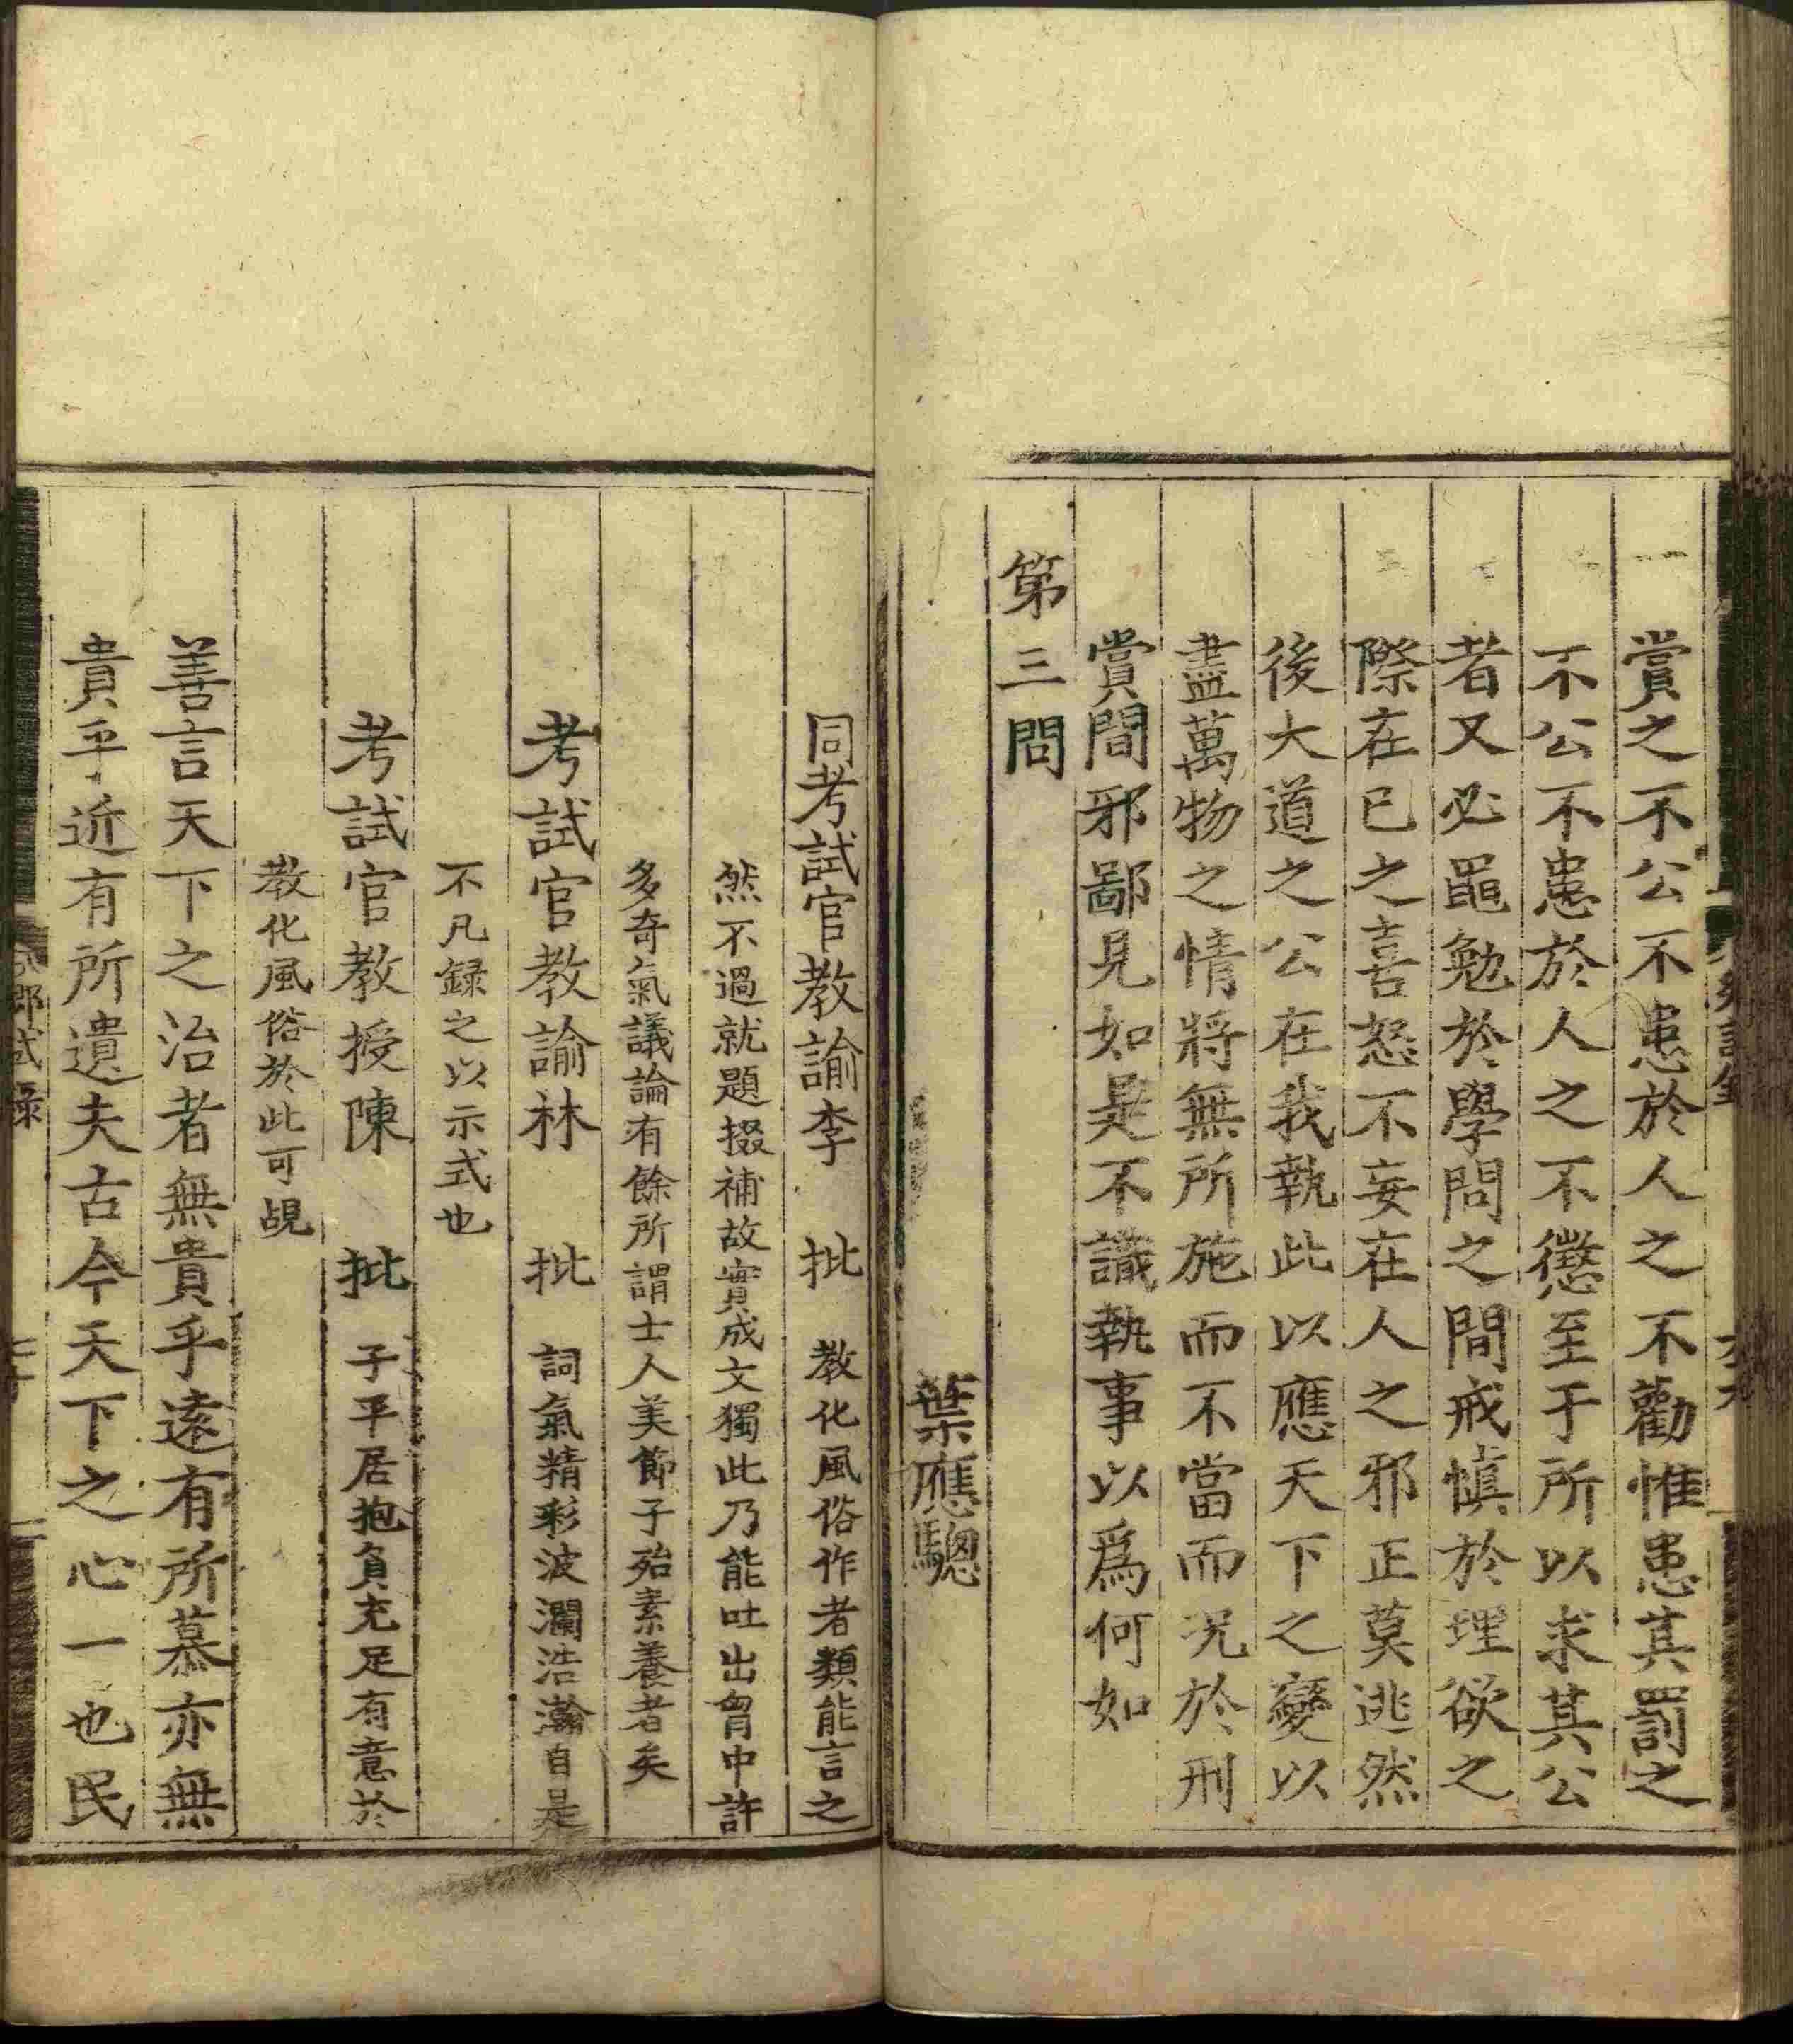 賞之不公不患於人之不勸惟患其罰之
不公不患於人之不懲至于所以求其公
者又必黽勉於學問之間戒慎於理欲之
際在已之喜怒不妄在人之邪正莫逃然
後大道之公在我執此以應天下之變以
盡萬物之情將無所施而不當而况於刑
賞間邪鄙見如是不識執事以爲何如
第三問
葉應驄
同考試官教諭李 批 教化風俗作者類能言之
然不過就題掇補故實成文獨此乃能吐出胷中許
多奇氣議論有餘所謂士人美節子殆素養者矣
考試官教諭林 批 詞氣精彩波瀾浩瀚自是
不凡録之以示式也
考試官教授陳 批 子平居抱負充足有意於
教化風俗於此可覘
善言天下之治者無貴乎遠有所慕亦無
貴乎近有所遺夫古今天下之心一也民
鄉試録